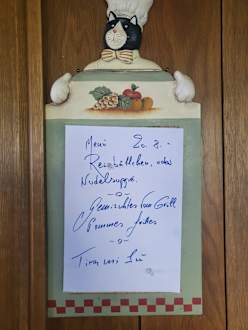 Menü 20. 8. -
Reisbällchen, oder
Nudelsuppe.
-o-
Gemischtes vom Grill
Pommes frites
-o-